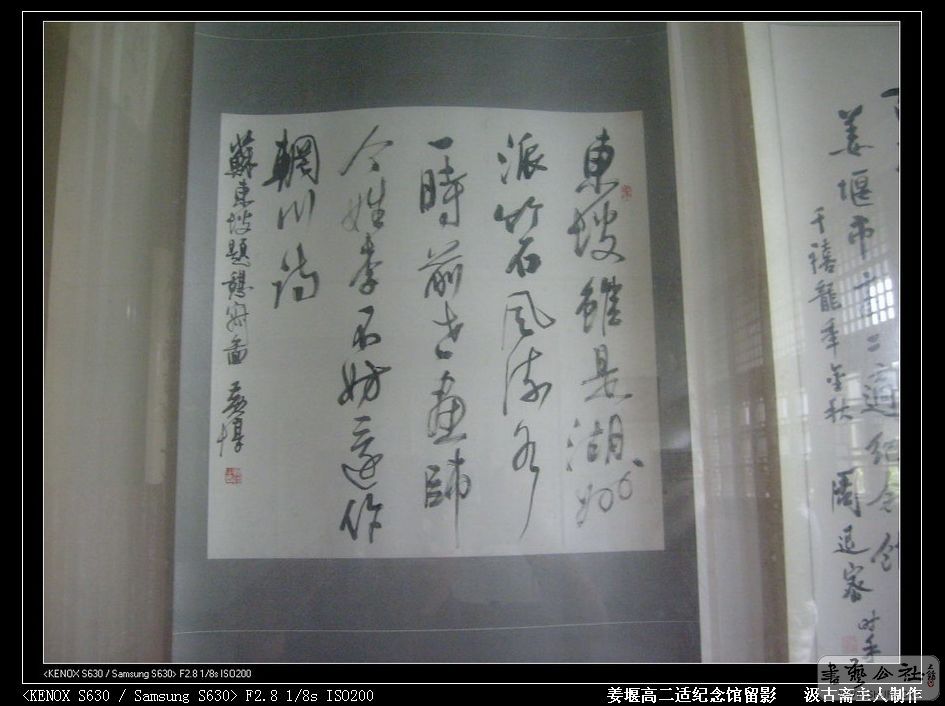 東坡雖是湖州
派竹石風流各
一時前世畫師
今姓李不妨還作
輞川詩
蘇東坡題憩寂圖
姜堰市高二適紀念館
千禧龍年金秋
周退密時年
<KENOX S630 / Samsung S630> F2.8 1/8s ISO200
<KENOX S630 / Samsung S630> F2.8 1/8s ISO200
姜堰高二适纪念馆留影 汲古斋主人制作
書藝公社